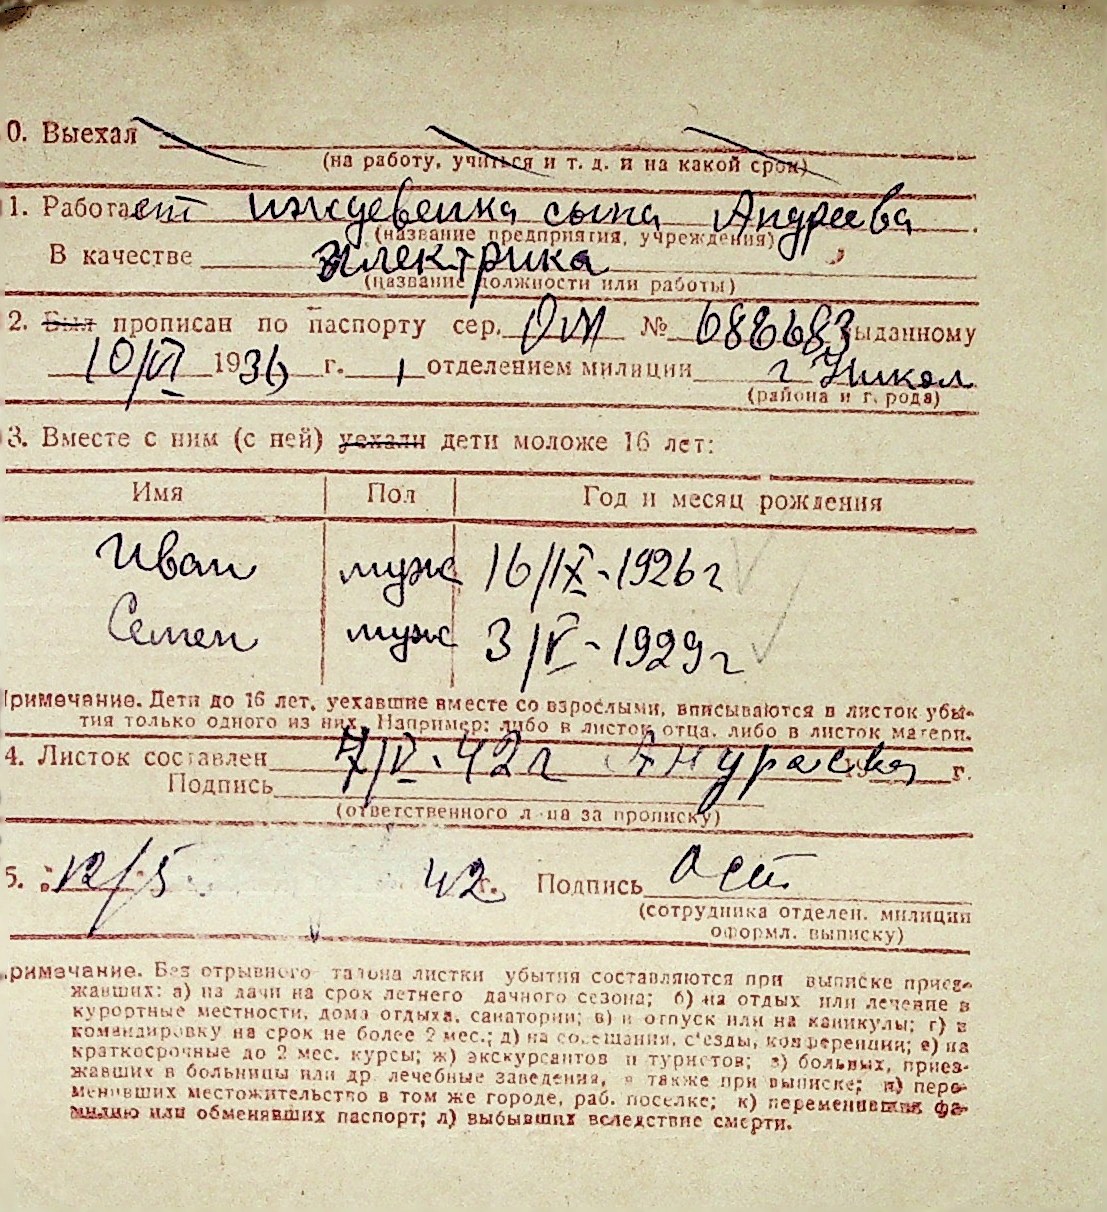 0. Выехал
(на работу, учиться и т. д. и на какой срок)
1. Работает иждевенка сына Андреева
(название предприятия, учреждения)
В качестве электрика
(название должности или работы)
2. Был прописан по паспорту сер. № 688683 выданному
10/VI 1936 г. 1 отделением милиции г Никол
(района и г. рода)
3. Вместе с ним (с ней) уехали дети моложе 16 лет:
Имя Пол Год и месяц рождения
Иван муж 16/IX-1926 г
Семен муж 3/V-1929 г
Примечание. Дети до 16 лет, уехавшие вместе со взрослыми, вписываются в листок убы-
тия только одного из них. Например: либо в листок отца, либо в листок матери.
4. Листок составлен 7/V-42 г г.
Подпись
(ответственного лица за прописку)
5. „12/5 42 г. Подпись
(сотрудника отделен. милиции
оформл. выписку)
римечание. Без отрывного талона листки убытия составляются при выписке приез-
жавших: а) на дачи на срок летнего дачного сезона; б) на отдых или лечение в
курортные местности, дома отдыха, санатории; в) в отпуск или на каникулы; г) в
командировку на срок не более 2 мес.; д) на совещания, с'езды, конференции; е) на
краткосрочные до 2 мес. курсы; ж) экскурсантов и туристов; з) больных, приез-
жавших в больницы или др. лечебные заведения, а также при выписке; и) пере-
менивших местожительство в том же городе, раб. поселке; к) переменивших фа-
милию или обменявших паспорт; л) выбывших вследствие смерти.